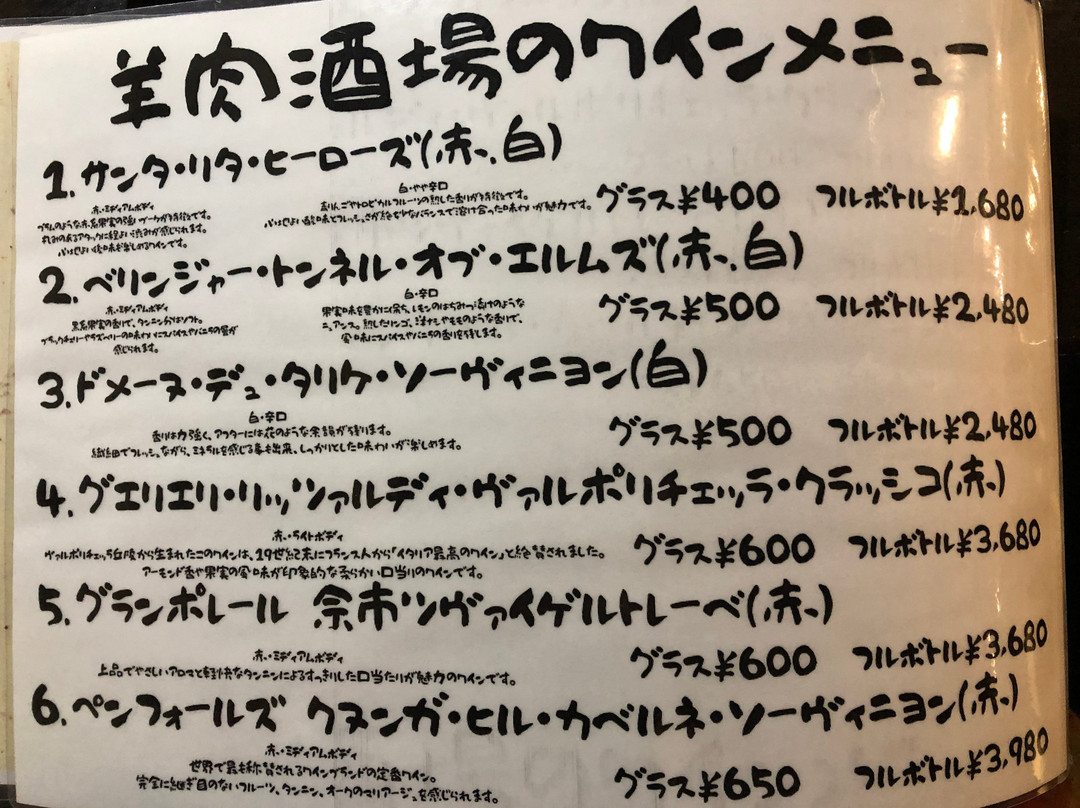 羊肉酒場のワインメニュー
1.サンタ・リタ・ヒーローズ(赤、白)
赤・ミディアムボディ
プラムのような赤系果実の強いブーケが特徴です。
丸みのあるアタックに程よい渋みが感じられます。
バリよい後味も楽しめるワインです。
白・やや辛口
青りんごやトロピカルフルーツの熟した香りが特徴です。
心地よい酸味とフレッシュさが絶妙なバランスで溶け合った味わいが魅力です。
グラス¥400 フルボトル¥1,680
2.ベリンジャー・トンネル・オブ・エルムズ(赤、白)
赤・ミディアムボディ
黒系果実の香りで、タンニンがソフト。
ブラックチェリーやラズベリーの味わいにスパイスやバニラの香が
感じられます。
白・辛口
果実味を豊かに保ち、レモンのはちみつ漬けのような
ニュアンス。熟したリンゴ、洋ナシやもものような香りで、
風味にスパイスやバニラの香りを残します。
グラス¥500 フルボトル¥2,480
3.ドメーヌ・デュ・タリケ・ソーヴィニヨン(白)
白・辛口
香りは力強く、アフターには花のような余韻が残ります。
繊細でフレッシュながら、ミネラルを感じる事も出来、しっかりとした味わいが楽しめます。
グラス¥500 フルボトル¥2,480
4.グエリエリ・リッツァルディ・ヴァルポリチェッラ・クラッシコ(赤)
赤・ライトボディ
ヴァルポリチェッラ丘陵から生まれたこのワインは、19世紀末にフランス人から「イタリア最高のワイン」と絶賛されました。
アーモンド香や果実の風味が印象的な柔らかい口当りのワインです。
グラス¥600 フルボトル¥3,680
5.グランポレール 余市ツヴァイゲルトレーベ(赤)
赤・ミディアムボディ
上品でやさしいアロマと軽快なタンニンによるすっきりした口当たりが魅力のワインです。
グラス¥600 フルボトル¥3,680
6.ペンフォールズ クヌンガ・ヒル・カベルネ・ソーヴィニヨン(赤)
赤・ミディアムボディ
世界で最も称賛されるワインブランドの定番ワイン。
完全に継ぎ目のないフルーツ、タンニン、オークのマリアージュを感じられます。
グラス¥650 フルボトル¥3,980